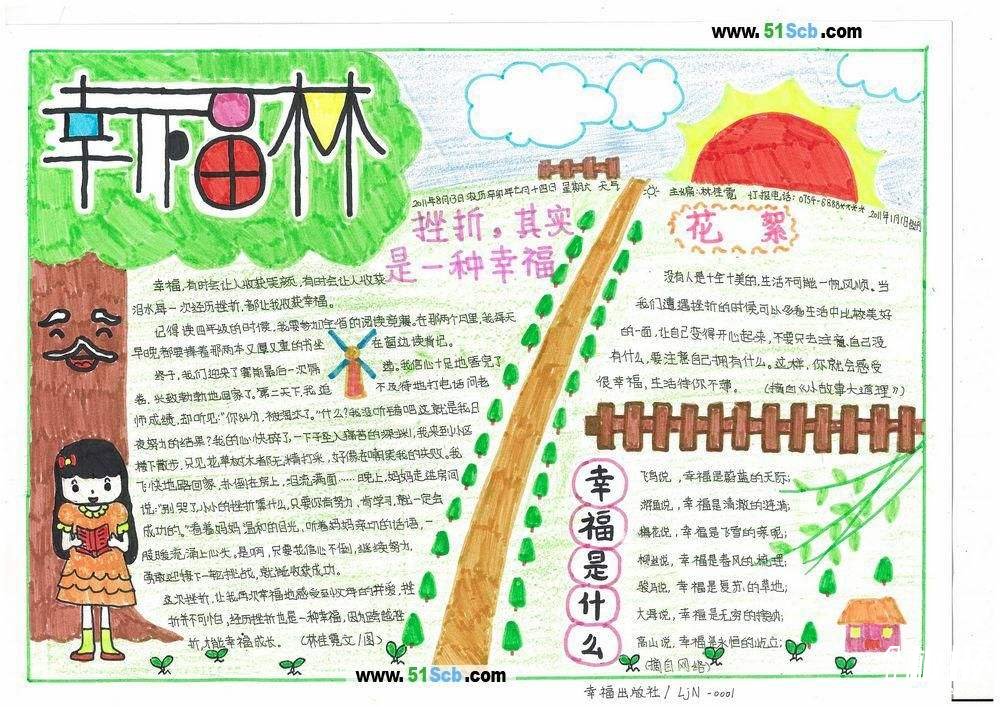 www.51Scb.com
幸福林
2011年8月13日 农历辛卯年七月十四日 星期六 天气
主编:林佳霓 订报电话:0754-6888****
2011年1月1日创刊
挫折,其实
是一种幸福
幸福,有时会让人收获笑颜,有时会让人收获
泪水。每一次经历挫折,都让我收获幸福。
记得读四年级的时候,我要参加全省的阅读竞赛。在那两个月里,我每天
早晚都要捧着那两本又厚又重的书坐在窗边读背记。
终于,我们迎来了赛前最后一次测卷,我信心十足地答完了
卷,兴致勃勃地回家了。第二天下午,我迫不及待地打电话问老
师成绩,却听见:“你84分,被淘汰了。”“什么?我没听错吧,这就是我日
夜努力的结果?”我的心快碎了,一下子坠入痛苦的深渊,我来到小区
楼下散步,只见花草树木都无精打采,好像在嘲笑我的失败,我
飞快地跑回家,扑倒在房上,泪流满面……晚上,妈妈走进房间
说:“别哭了,小小的挫折算什么,只要你肯努力,肯学习,就一定会
成功的。”看着妈妈温和的目光,听着妈妈亲切的话语,一
股暖流涌上心头。是啊,只要我信心不倒,继续努力,
勇敢迎接下一轮挑战,就能收获成功。
这次挫折,让我再次幸福地感受到父母的疼爱,挫
折并不可怕,经历挫折也是一种幸福,因为跨越挫
折,才能幸福成长。 (林佳霓文/图)
花絮
没有人是十全十美的,生活不可能一帆风顺。当
我们遭遇挫折的时候可以多看生活中比较美好
的一面,让自己变得开心起来,不要只去注意自己没
有什么,要注意自己拥有什么。这样,你就会感受
很幸福,生活待你不薄。 (摘自《小故事大道理》)
幸福是什么
飞鸟说,幸福是蔚蓝的天际;
游鱼说,幸福是清澈的涟漪;
梅花说,幸福是飞雪的亲昵;
柳丝说,幸福是春风的梳理;
骏马说,幸福是复苏的草地;
大海说,幸福是无穷的接纳;
高山说,幸福是永恒的屹立;
(摘自网络)
www.51Scb.com
幸福出版社/LJN-0001